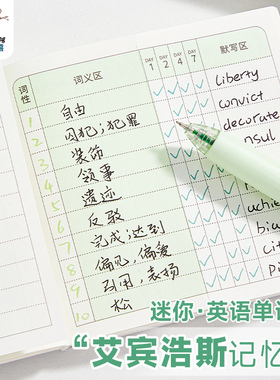 词性
词义区
DAY 1
DAY 2
DAY 4
DAY 7
默写区
1 自由 liberty
2 囚犯；犯罪 convict
3 装饰 decorate
4 领事 nsul
5 遗迹
6 反驳
7 完成；达到
8 偏见，偏爱
9 引用，表扬
10 松
迷你·英语单词
“艾宾浩斯记忆